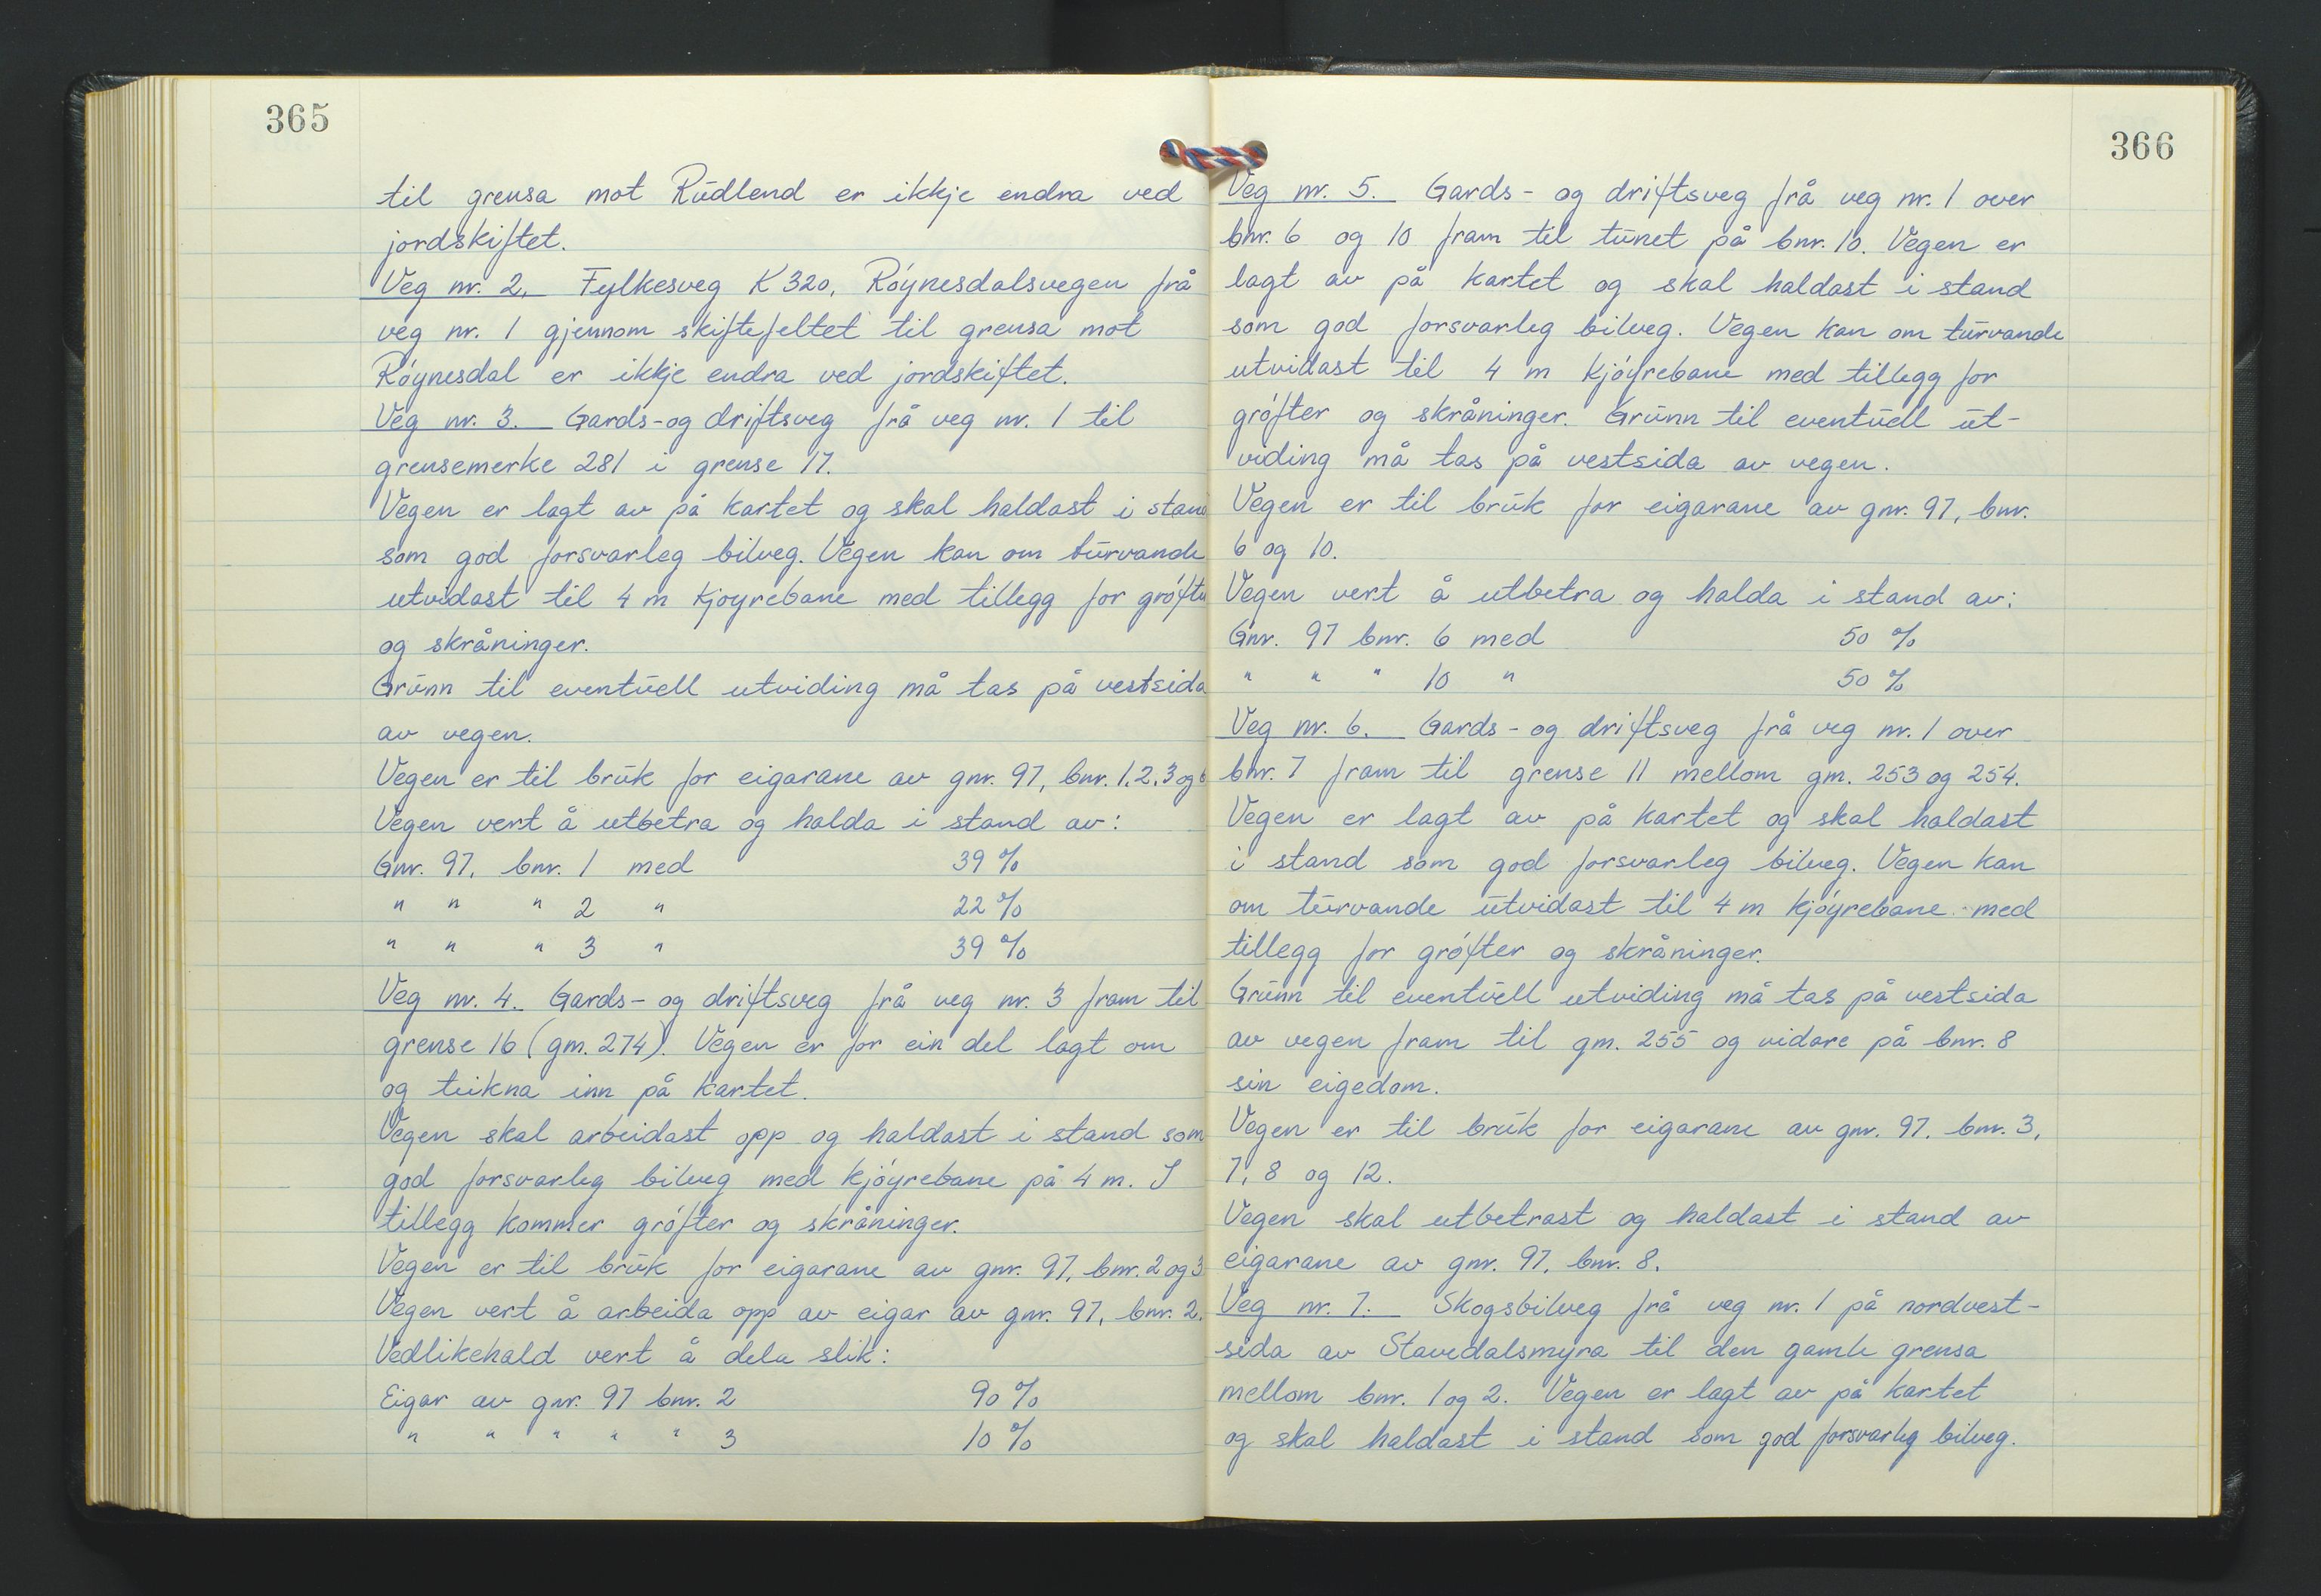 365
til grensa mot Rudlend er ikkje endra ved
jordskiftet.
Veg nr. 2. Fylkesveg K 320, Röynesdalsvegen frå
veg nr. 1 gjennom skiftefeltet til grensa mot
Röynesdal er ikkje endra ved jordskiftet.
Veg nr. 3. Gards- og driftsveg frå veg nr. 1 til
grensemerke 281 i grense 17.
Vegen er lagt av på kartet og skal haldast i stand
som god forsvarleg bilveg. Vegen kan om turvande
utvidast til 4 m kjoyrebane med tillegg for gröfter
og skråninger.
Grunn til eventuell utviding må tas på vestsida
av vegen.
Vegen er til bruk for eigarane av gnr. 97, bnr. 1, 2, 3 og 6
Vegen vert å utbetra og halda i stand av:
Gnr. 97, bnr. 1 med 39 %
" " " 2 " 22 %
" " " 3 " 39 %
Veg nr. 4. Gards- og driftsveg frå veg nr. 3 fram til
grense 16 (gm. 274). Vegen er for ein del lagt om
og teikna inn på kartet.
Vegen skal arbeidast opp og haldast i stand som
god forsvarleg bilveg med kjöyrebane på 4 m. I
tillegg kommer gröfter og skråninger.
Vegen er til bruk for eigarane av gnr. 97, bnr. 2 og 3
Vegen vert å arbeida opp av eigar av gnr. 97, bnr. 2.
Vedlikehald vert å dela slik:
Eigar av gnr. 97 bnr. 2 90 %
" " " " " 3 10 %
366
Veg nr. 5. Gards- og driftsveg frå veg nr. 1 over
bnr. 6 og 10 fram til tunet på bnr. 10. Vegen er
lagt av på kartet og skal haldast i stand
som god forsvarleg bilveg. Vegen kan om turvande
utvidast til 4 m kjöyrebane med tillegg for
gröfter og skråninger. Grunn til eventuell ut-
viding må tas på vestsida av vegen.
Vegen er til bruk for eigarane av gnr. 97, bnr.
6 og 10.
Vegen vert å utbetra og halda i stand av:
Gnr. 97 bnr. 6 med 50 %
" " " 10 " 50 %
Veg nr. 6. Gards- og driftsveg frå veg nr. 1 over
bnr. 7 fram til grense 11 mellom gm. 253 og 254.
Vegen er lagt av på kartet og skal haldast
i stand som god forsvarleg bilveg. Vegen kan
om turvande utvidast til 4 m kjöyrebane med
tillegg for gröfter og skråninger.
Grunn til eventuell utviding må tas på vestsida
av vegen fram til gm. 255 og vidare på bnr. 8
sin eigedom.
Vegen er til bruk for eigarane av gnr. 97, bnr. 3,
7, 8 og 12.
Vegen skal utbetrast og haldast i stand av
eigarane av gnr. 97, bnr. 8.
Veg nr. 7. Skogsbilveg frå veg nr. 1 på nordvest-
sida av Stavedalsmyra til den gamle grensa
mellom bnr. 1 og 2. Vegen er lagt av på kartet
og skal haldast i stand som god forsvarleg bilveg.